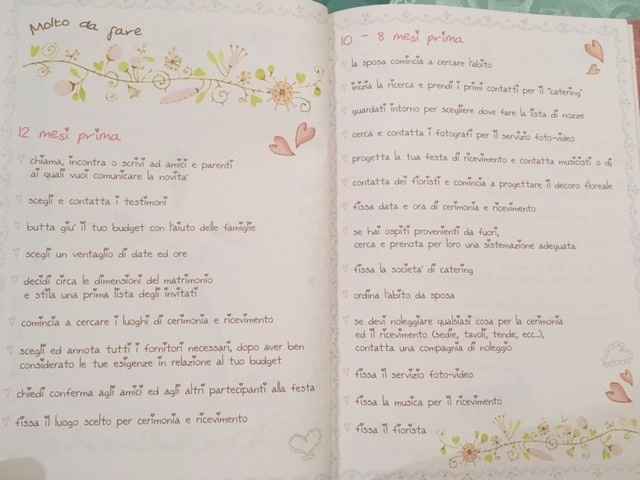 Molto da fare
12 mesi prima
chiama, incontra o scrivi ad amici e parenti
ai quali vuoi comunicare la novita'
scegli e contatta i testimoni
butta giu' il tuo budget con l'aiuto delle famiglie
scegli un ventaglio di date ed ore
decidi circa le dimensioni del matrimonio
e stila una prima lista degli invitati
comincia a cercare i luoghi di cerimonia e ricevimento
scegli ed annota tutti i fornitori necessari, dopo aver ben
considerato le tue esigenze in relazione al tuo budget
chiedi conferma agli amici ed agli altri partecipanti alla festa
fissa il luogo scelto per cerimonia e ricevimento
10 - 8 mesi prima
la sposa comincia a cercare l'abito
inizia la ricerca e prendi i primi contatti per il "catering"
guardati intorno per scegliere dove fare la lista di nozze
cerca e contatta i fotografi per il servizio foto-video
progetta la tua festa di ricevimento e contatta musicisti o dj
contatta dei fioristi e comincia a progettare il decoro floreale
fissa data e ora di cerimonia e ricevimento
se hai ospiti provenienti da fuori,
cerca e prenota per loro una sistemazione adeguata
fissa la societa' di catering
ordina l'abito da sposa
se devi noleggiare qualsiasi cosa per la cerimonia
ed il ricevimento (sedie, tavoli, tende, ecc..),
contatta una compagnia di noleggio
fissa il servizio foto-video
fissa la musica per il ricevimento
fissa il fiorista